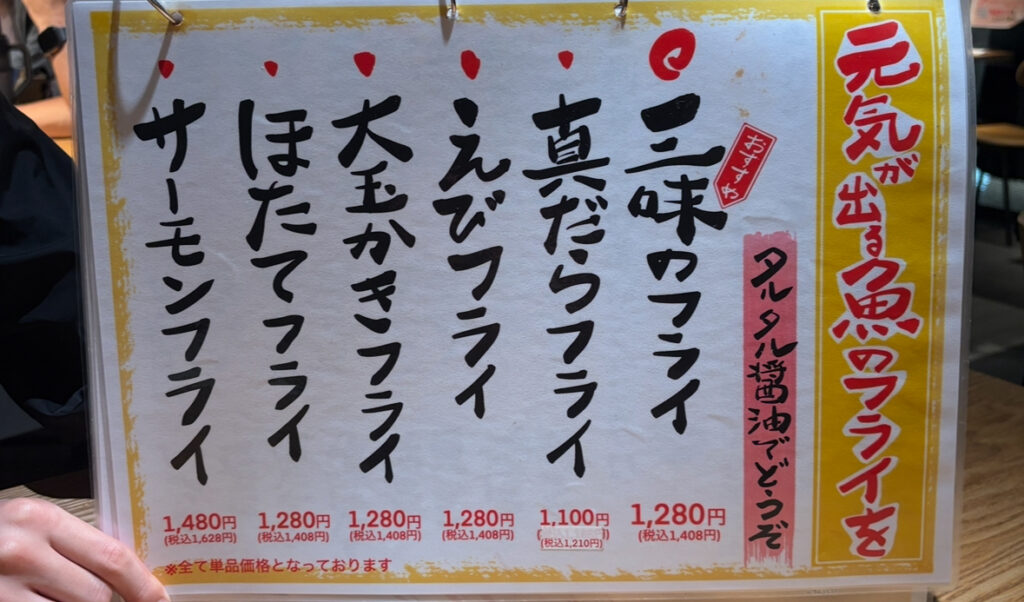 元気が出る魚のフライを
タルタル醤油でどうぞ
おすすめ
三味のフライ
1,280円
(税込1,408円)
真だらフライ
1,100円
(税込1,210円)
えびフライ
1,280円
(税込1,408円)
大玉かきフライ
1,280円
(税込1,408円)
ほたてフライ
1,280円
(税込1,408円)
サーモンフライ
1,480円
(税込1,628円)
※全て単品価格となっております